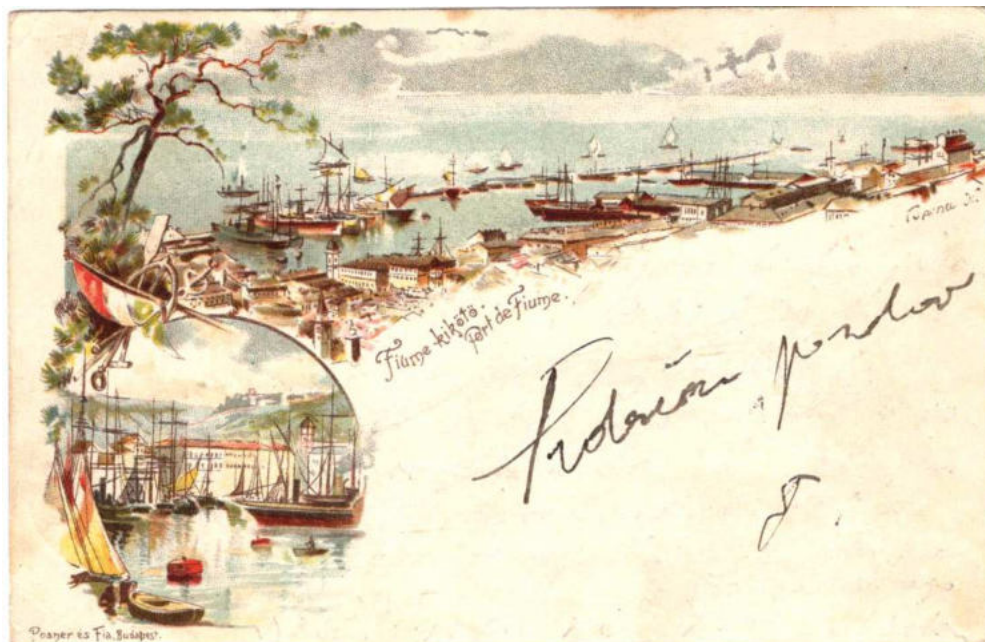 Fiume-kikötő.
Port de Fiume.
pozdrav
Posner és Fia, Budapest.